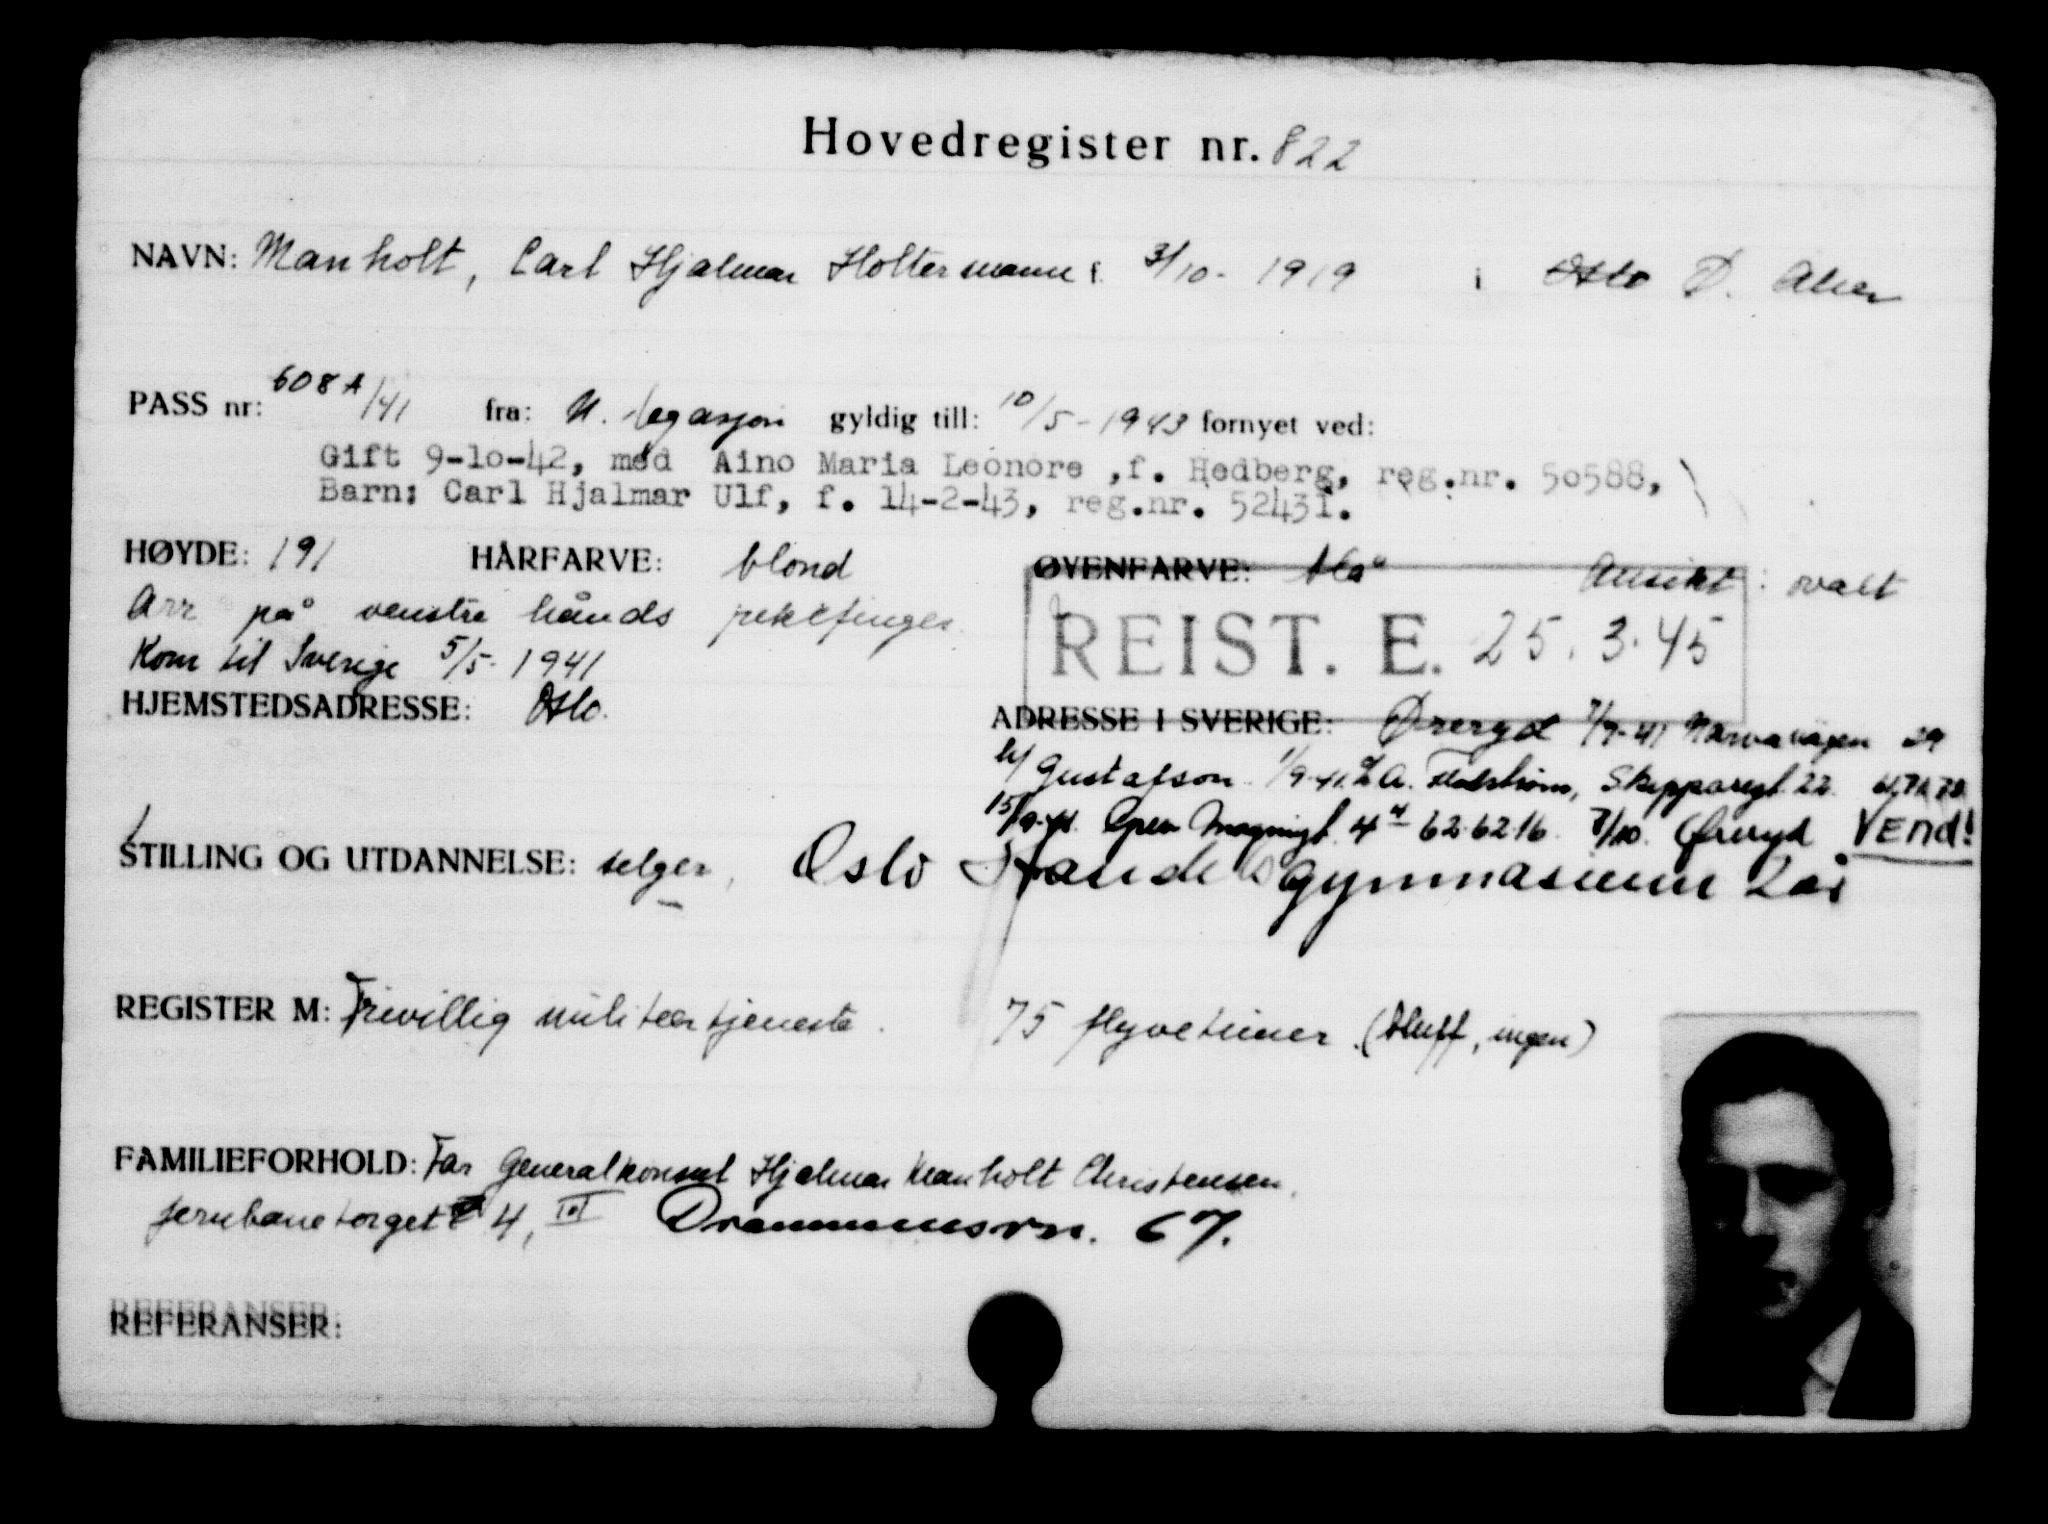 Hovedregister nr. 822
NAVN: Manholt, Carl Hjalmar Holtermann f. 3/10- 1919 i Oslo V. Aker
PASS nr: 608 A/41 fra: N. legasjon gyldig till: 10/5-1943 fornyet ved:
Gift 9-10-42, med Aino Maria Leonore ,f. Hedberg, reg.nr. 50588,
Barn: Carl Hjalmar Ulf, f. 14-2-43, reg.nr. 52431.
HØYDE: 191 HÅRFARVE: blond ØYENFARVE: blå Ansikt: ovalt
Arr på venstre hånds pekefinger.
REIST. E. 25.3.45
Kom til Sverige 5/5-1941
HJEMSTEDSADRESSE: Oslo.
ADRESSE I SVERIGE: Øreryd 7/7-41 Narvavägen 29
b/ Gustafson 1/9-41. A. Skepparegt. 22.
15/9-41. 4 62 62 16 7/10. Øreryd Vend!
STILLING OG UTDANNELSE: selger, Oslo Handelsgymnasium 2 år
REGISTER M: Frivillig militærtjeneste. 75 flyvetimer (bluff, ingen)
FAMILIEFORHOLD: Far Generalkonsul Hjalmar Manholt Christensen,
Jernbanetorget 4, III Drammensvn. 67.
REFERANSER: